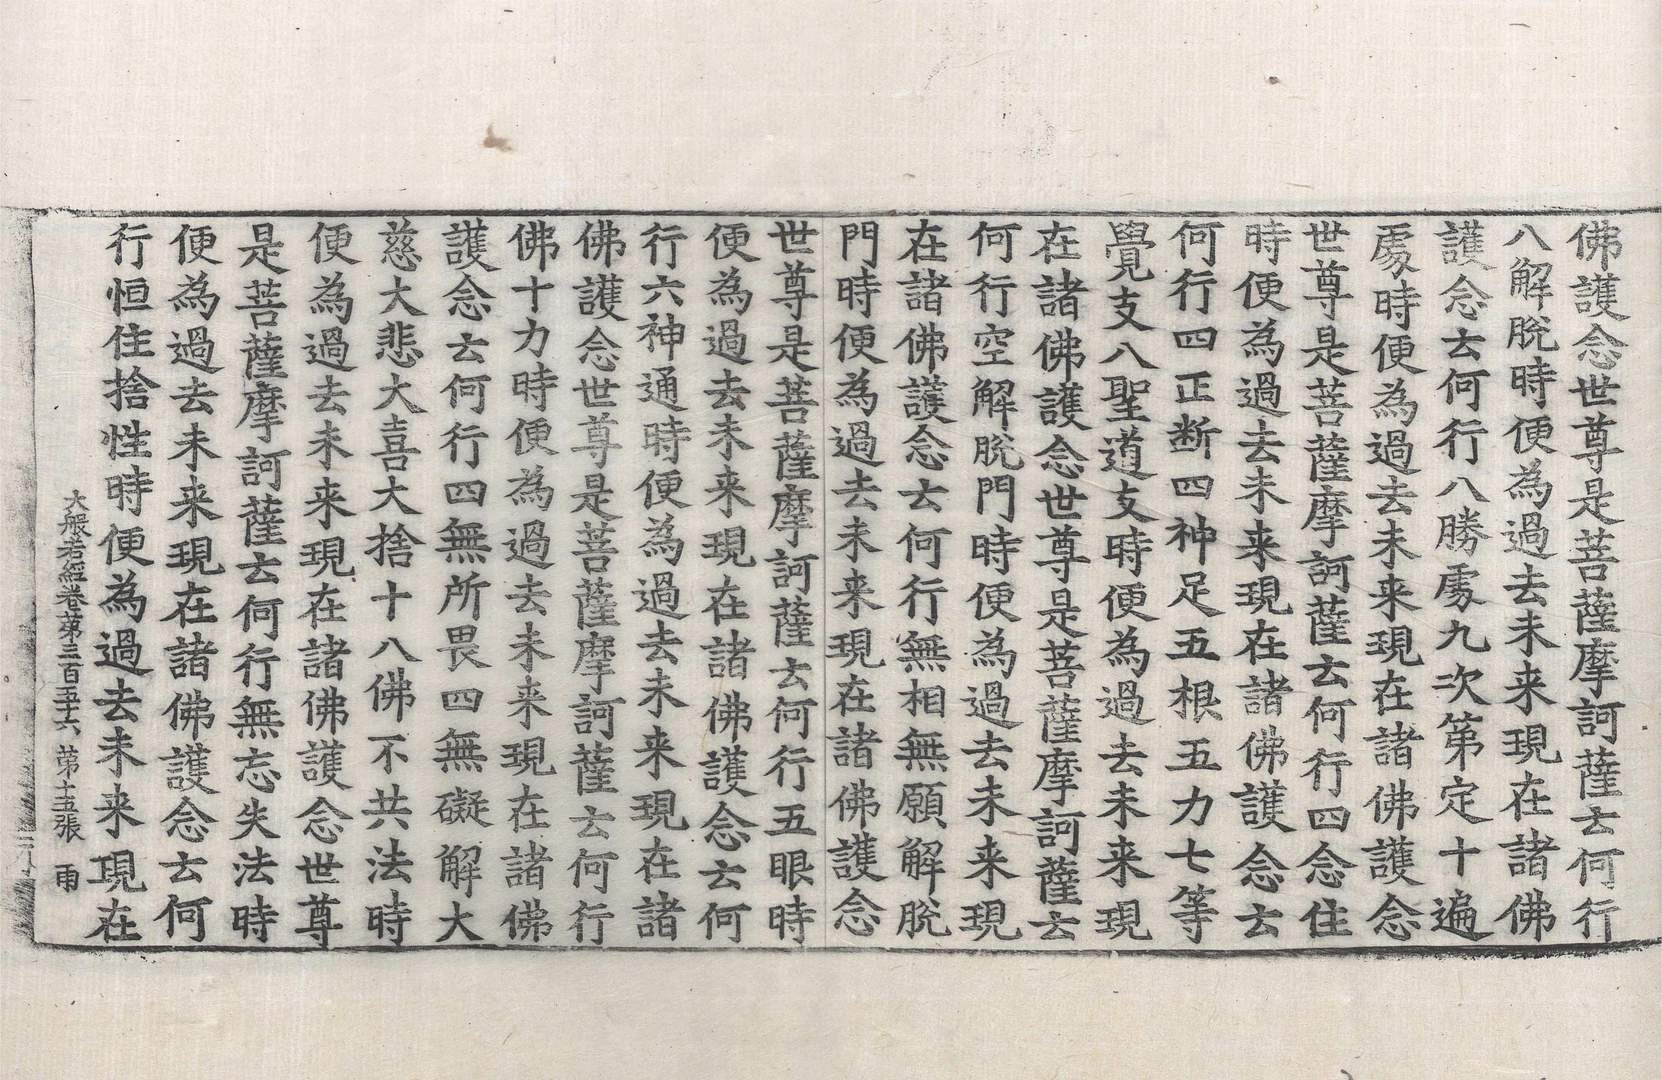 佛護念世尊是菩薩摩訶薩云何行
八解脫時便為過去未来現在諸佛
護念云何行八勝處九次第定十遍
處時便為過去未来現在諸佛護念
世尊是菩薩摩訶薩云何行四念住
時便為過去未来現在諸佛護念云
何行四正断四神足五根五力七等
覺支八聖道支時便為過去未来現
在諸佛護念世尊是菩薩摩訶薩云
何行空解脫門時便為過去未来現
在諸佛護念云何行無相無願解脫
門時便為過去未来現在諸佛護念
世尊是菩薩摩訶薩云何行五眼時
便為過去未来現在諸佛護念云何
行六神通時便為過去未来現在諸
佛護念世尊是菩薩摩訶薩云何行
佛十力時便為過去未来現在諸佛
護念云何行四無所畏四無礙解大
慈大悲大喜大捨十八佛不共法時
便為過去未来現在諸佛護念世尊
是菩薩摩訶薩云何行無忘失法時
便為過去未来現在諸佛護念云何
行恒住捨性時便為過去未来現在
大般若經卷第三百五十六 第十五張 雨